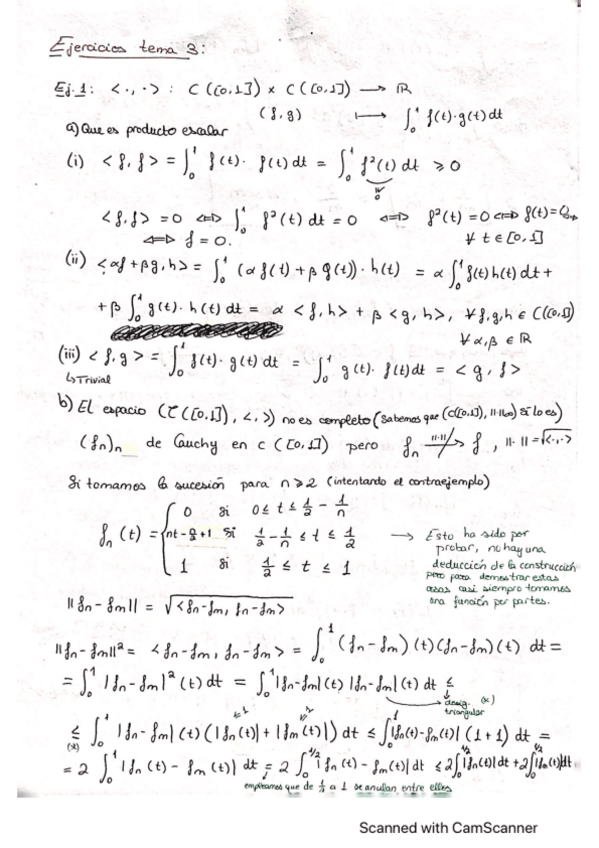 Ejercicios tema 3:
Ej.1: < · , · > : C([0,1]) × C([0,1]) → ℝ
(f,g) ↦ ∫₀¹ f(t)·g(t)dt
a) Que es producto escalar
(i) < f, f > = ∫₀¹ f(t)· f(t)dt = ∫₀¹ f²(t) dt ≥ 0
< f, f > = 0 ⟺ ∫₀¹ f²(t) dt = 0 ⟺ f²(t) = 0 ⟺ f(t) = 0,
⟺ f = 0. ∀ t ∈ [0,1]
(ii) < αf + βg, h > = ∫₀¹ (α f(t) + β g(t)) · h(t) = α ∫₀¹ f(t)h(t)dt +
+ β ∫₀¹ g(t)· h(t) dt = α < f, h > + β < g, h >, ∀ f,g,h ∈ C([0,1])
∀ α,β ∈ ℝ
(iii) < f, g > = ∫₀¹ f(t)· g(t)dt = ∫₀¹ g(t)· f(t)dt = < g, f >
↳ Trivial
b) El espacio (C([0,1]), <,>) no es completo (sabemos que (C([0,1]), ||·||∞) sí lo es)
(fₙ)ₙ de Cauchy en C([0,1]) pero fₙ ↛ f, ||·|| = √<·,·>
Si tomamos la sucesión para n ≥ 2 (intentando el contraejemplo)
0 si 0 ≤ t ≤ 1/2 - 1/n
fₙ(t) = { nt - n/2 + 1 si 1/2 - 1/n ≤ t ≤ 1/2 → Esto ha sido por
probar, no hay una
1 si 1/2 ≤ t ≤ 1 deducción de la construcción
pero para demostrar estas
cosas casi siempre tomamos
una función por partes.
||fₙ - fₘ|| = √<fₙ - fₘ, fₙ - fₘ>
||fₙ - fₘ||² = <fₙ - fₘ, fₙ - fₘ> = ∫₀¹ (fₙ - fₘ)(t)(fₙ - fₘ)(t) dt =
= ∫₀¹ |fₙ - fₘ|²(t) dt = ∫₀¹ |fₙ - fₘ|(t) |fₙ - fₘ|(t) dt ≤
desig. (*)
triangular
≤ (*) ∫₀¹ |fₙ - fₘ|(t) (|fₙ(t)| + |fₘ(t)|) dt ≤ ∫₀¹ |fₙ(t) - fₘ(t)| (1 + 1) dt =
= 2 ∫₀¹ |fₙ(t) - fₘ(t)| dt = 2 ∫₀^(1/2) |fₙ(t) - fₘ(t)| dt ≤ 2∫₀^(1/2) |fₙ(t)| dt + 2∫₀^(1/2) |fₘ(t)| dt
empleamos que de 1/2 a 1 se anulan entre ellas
Scanned with CamScanner